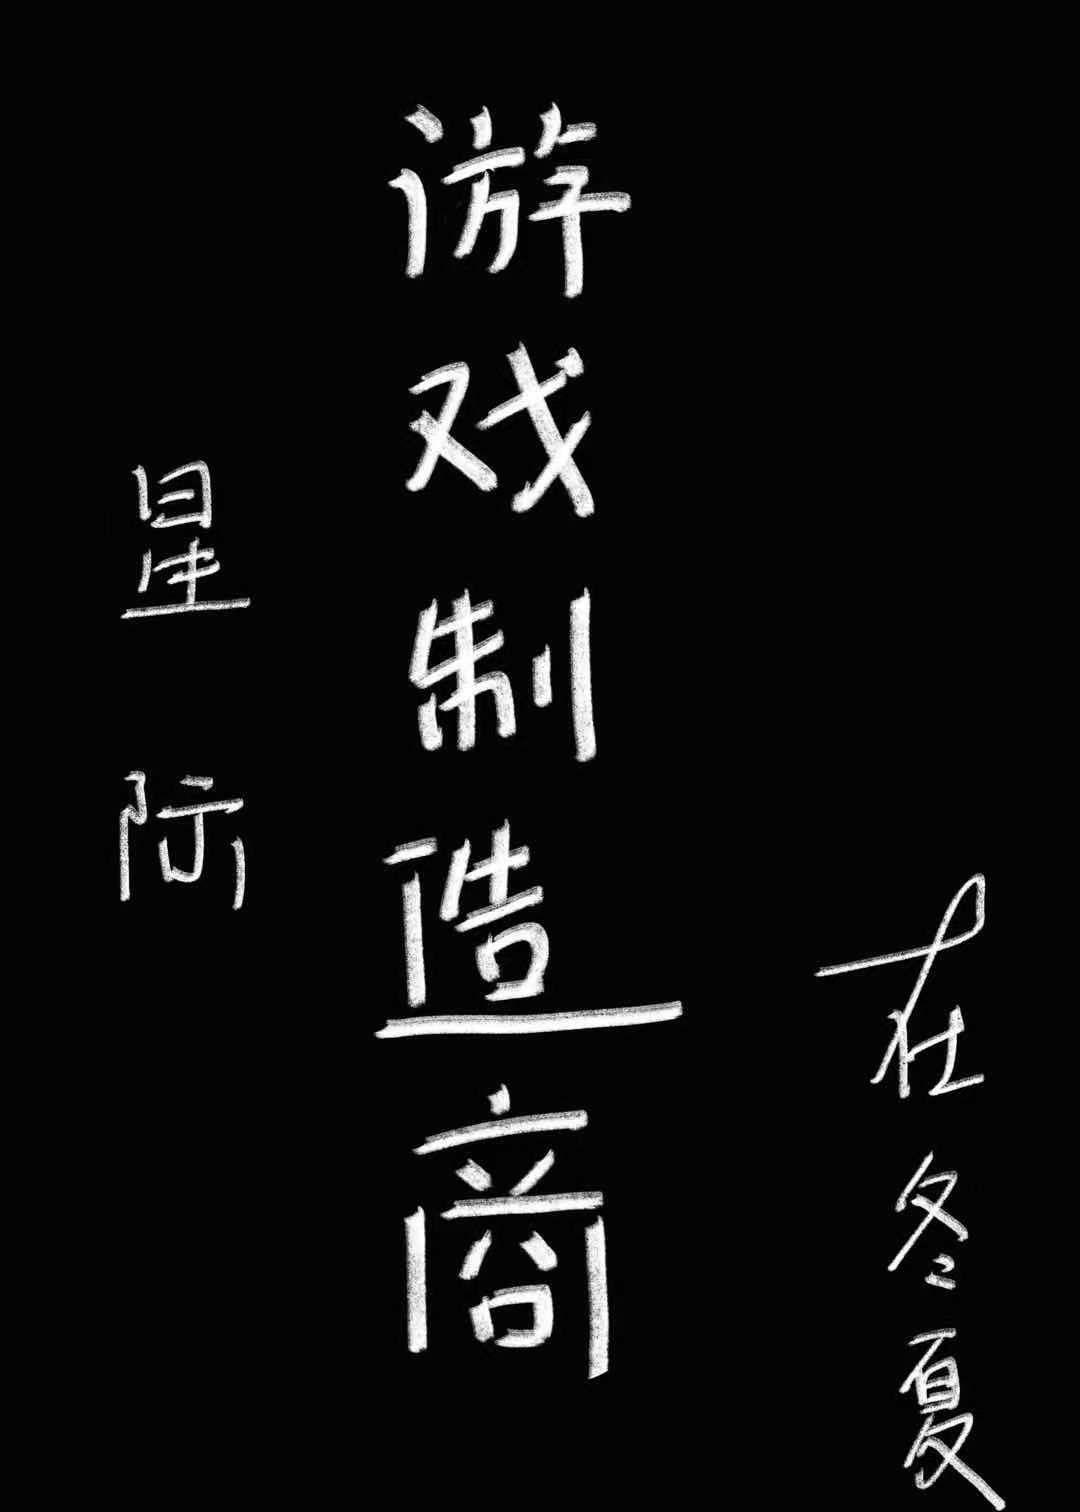 星际
游戏制造商
在冬夏